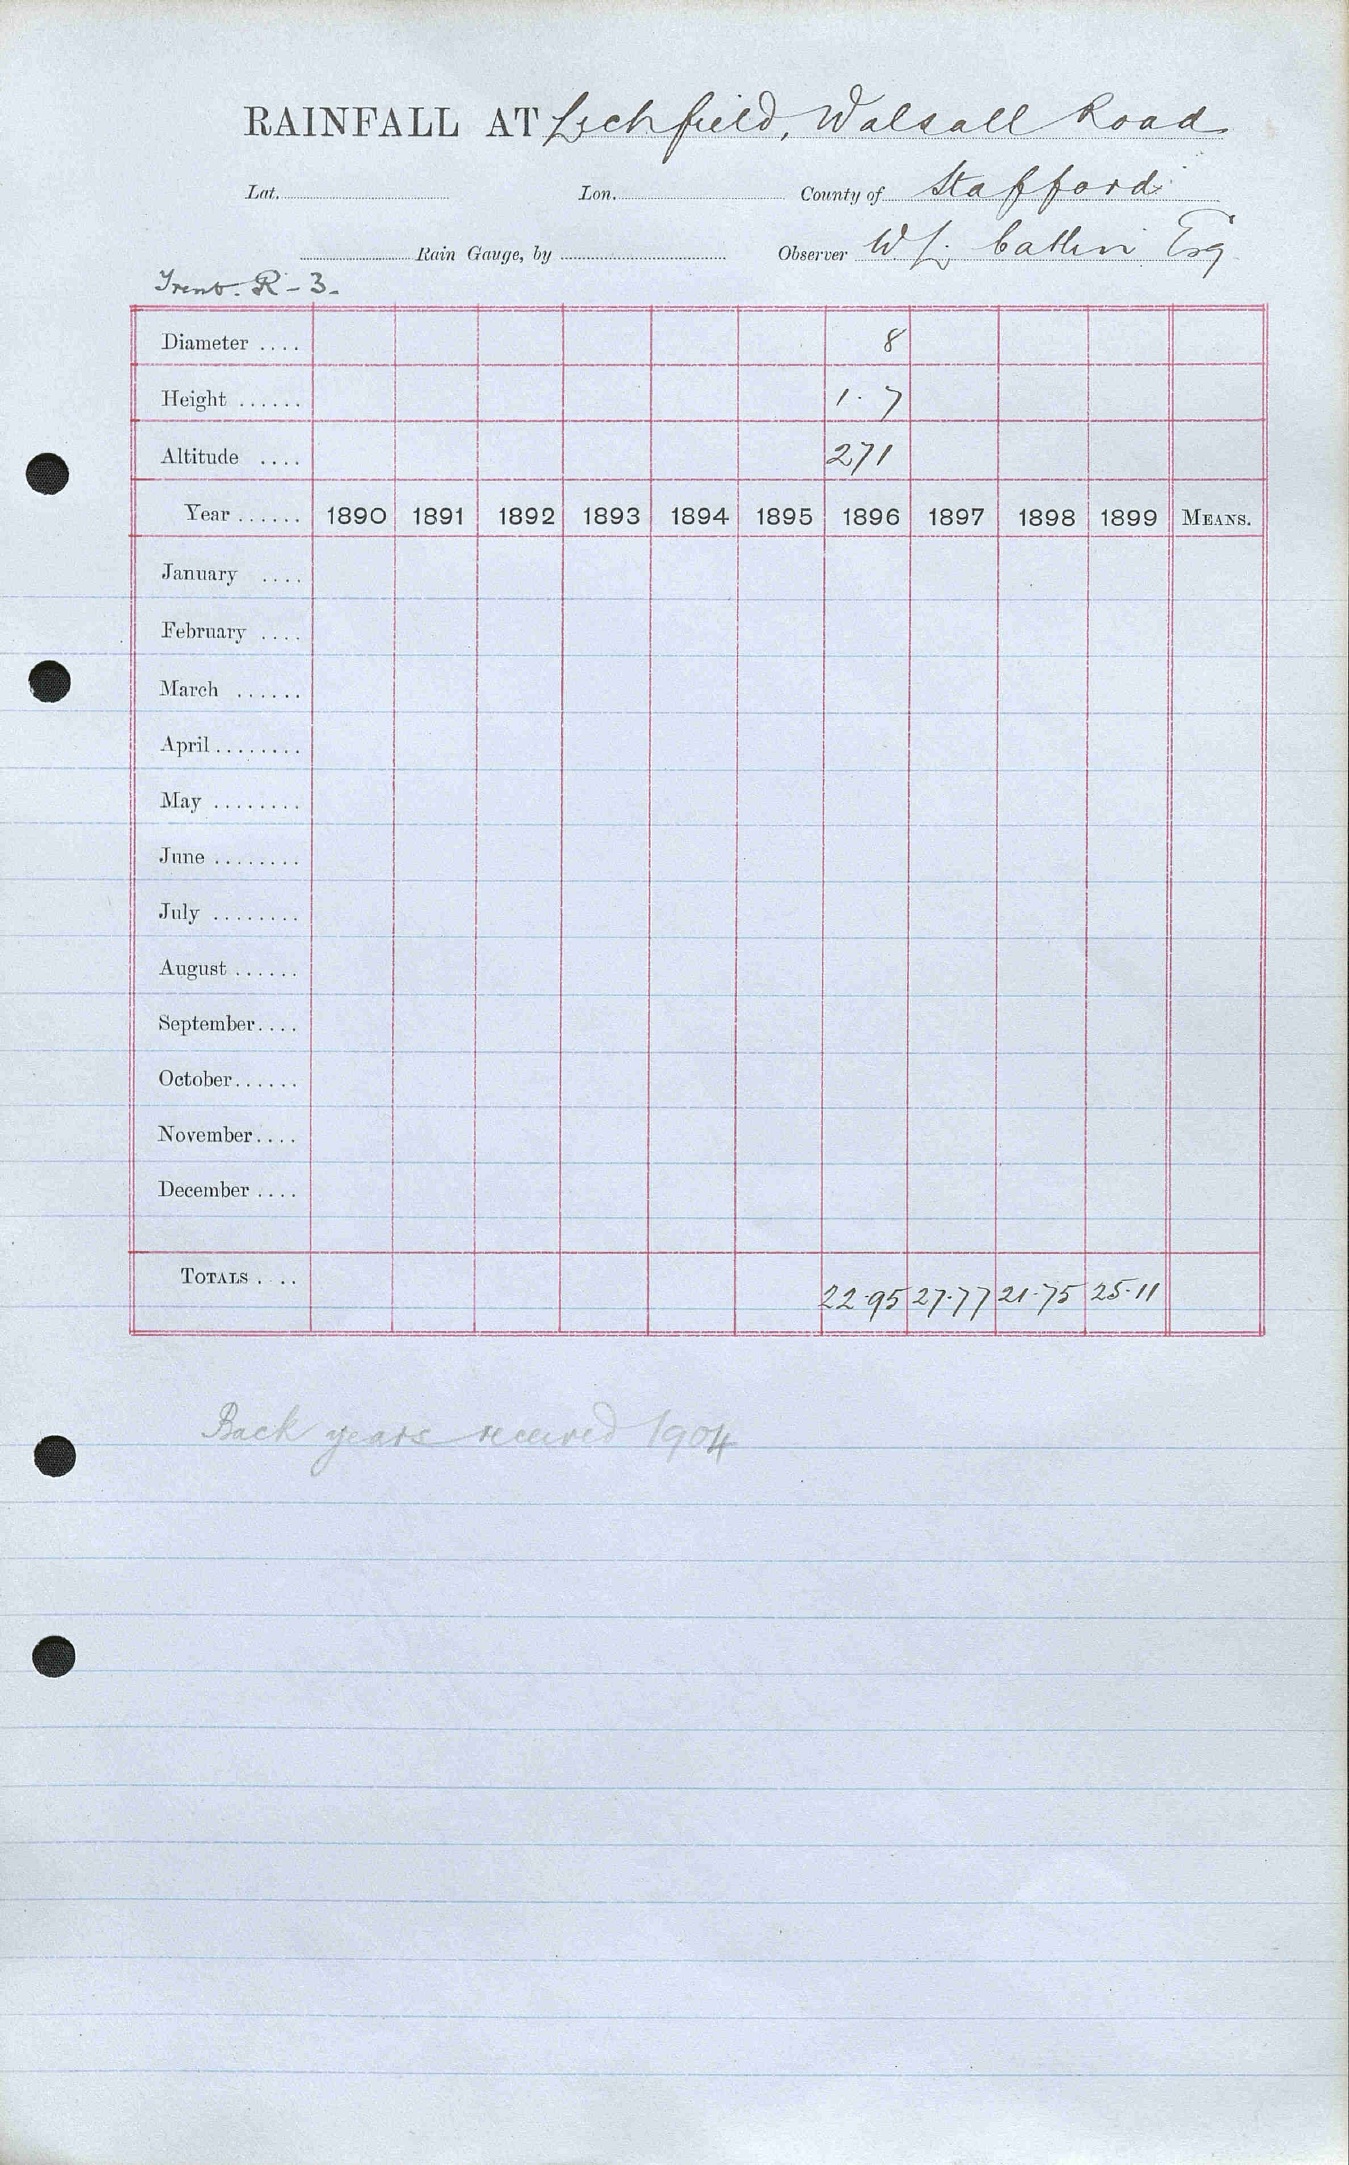 RAINFALL AT Lichfield, Walsall Road
Lat. Lon. County of Stafford
Rain Gauge, by Observer W L. Catlin Esq
Trent. R - 3 -
Diameter .... 8
Height ...... 1. 7
Altitude .... 271
Year ...... 1890 1891 1892 1893 1894 1895 1896 1897 1898 1899 MEANS.
January ....
February ....
March ......
April ........
May ........
June ........
July ........
August ......
September....
October......
November....
December ....
TOTALS . .. 22.95 27.77 21.75 25.11
Back years received 1904